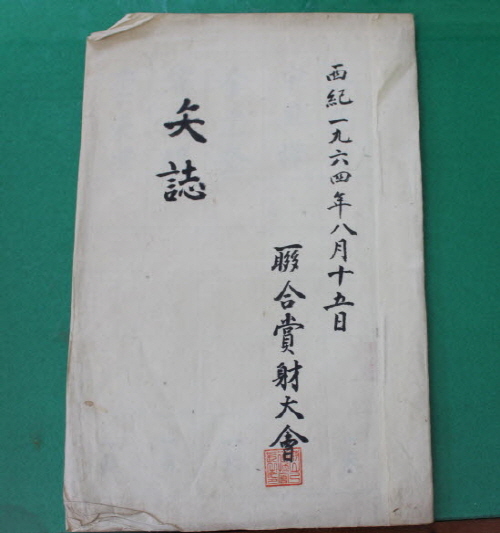 西紀一九六四年八月十五日
聯合賞射大會
矢誌